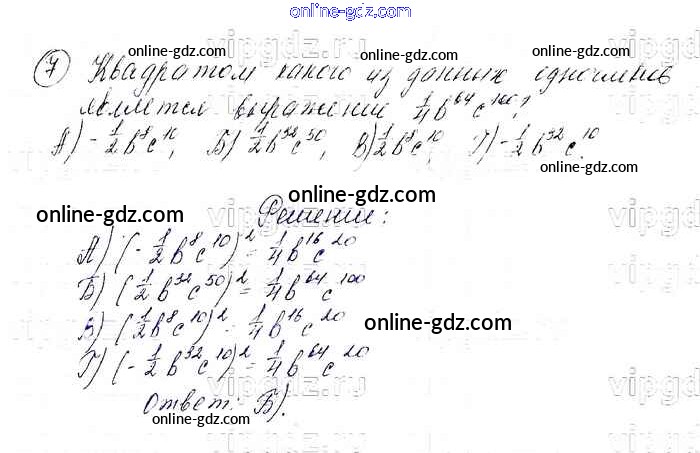 online-gdz.com
7 Квадратом какого из данных одночленов
является выражение 1/4 b^64 c^100?
А) -1/2 b^8 c^10, Б) 1/2 b^32 c^50, В) 1/2 b^8 c^10, Г) -1/2 b^32 c^10.
Решение:
А) (-1/2 b^8 c^10)^2 = 1/4 b^16 c^20
Б) (1/2 b^32 c^50)^2 = 1/4 b^64 c^100
В) (1/2 b^8 c^10)^2 = 1/4 b^16 c^20
Г) (-1/2 b^32 c^10)^2 = 1/4 b^64 c^20
Ответ: Б).
online-gdz.com
online-gdz.com
online-gdz.com
online-gdz.com
online-gdz.com
online-gdz.com
online-gdz.com
online-gdz.com
online-gdz.com
online-gdz.com